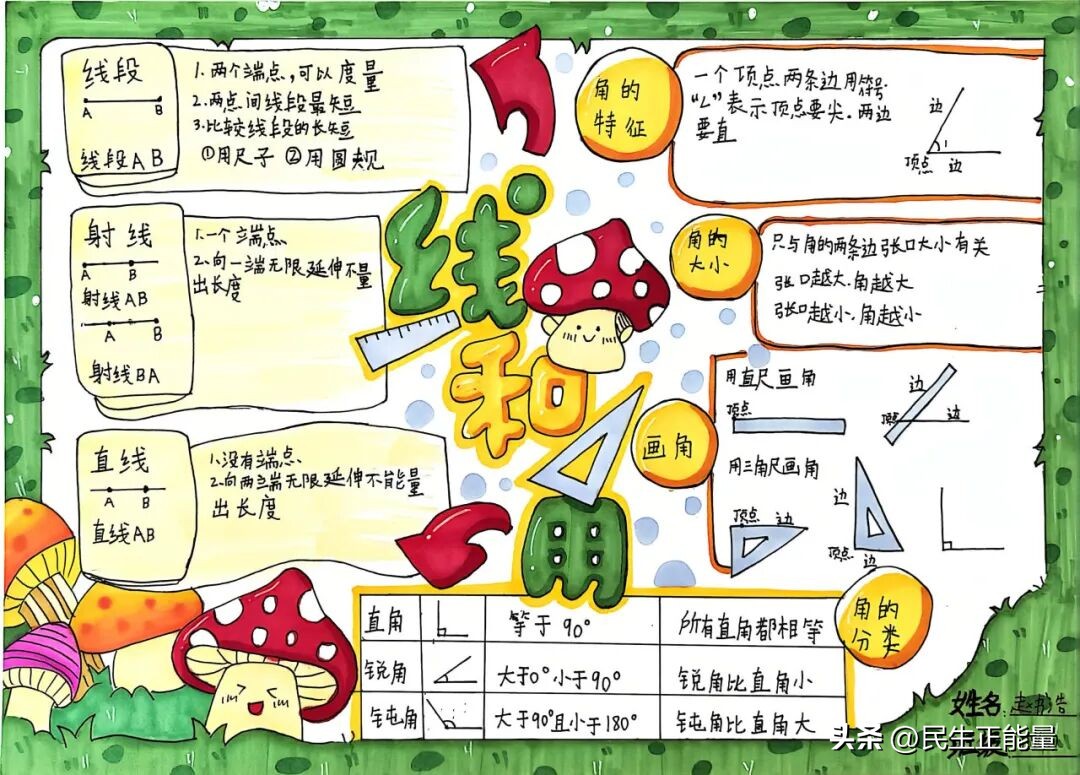 线段
A B
线段AB
1.两个端点,可以度量
2.两点间线段最短
3.比较线段的长短
①用尺子 ②用圆规
射线
A B
射线AB
A B
射线BA
1.一个端点
2.向一端无限延伸不量
出长度
直线
A B
直线AB
1.没有端点
2.向两端无限延伸不能量
出长度
线
和
角
角的
特征
一个顶点两条边用符号
“∠”表示顶点要尖.两边
要直
边
1
顶点 边
角的
大小
只与角的两条边张口大小有关
张口越大.角越大
张口越小.角越小
画角
用直尺画角
顶点
边
顶点 边
用三角尺画角
顶点 边
边
顶点 边
角的
分类
直角 等于90° 所有直角都相等
锐角 大于0°小于90° 锐角比直角小
钝角 大于90°且小于180° 钝角比直角大
姓名:
头条 @民生正能量